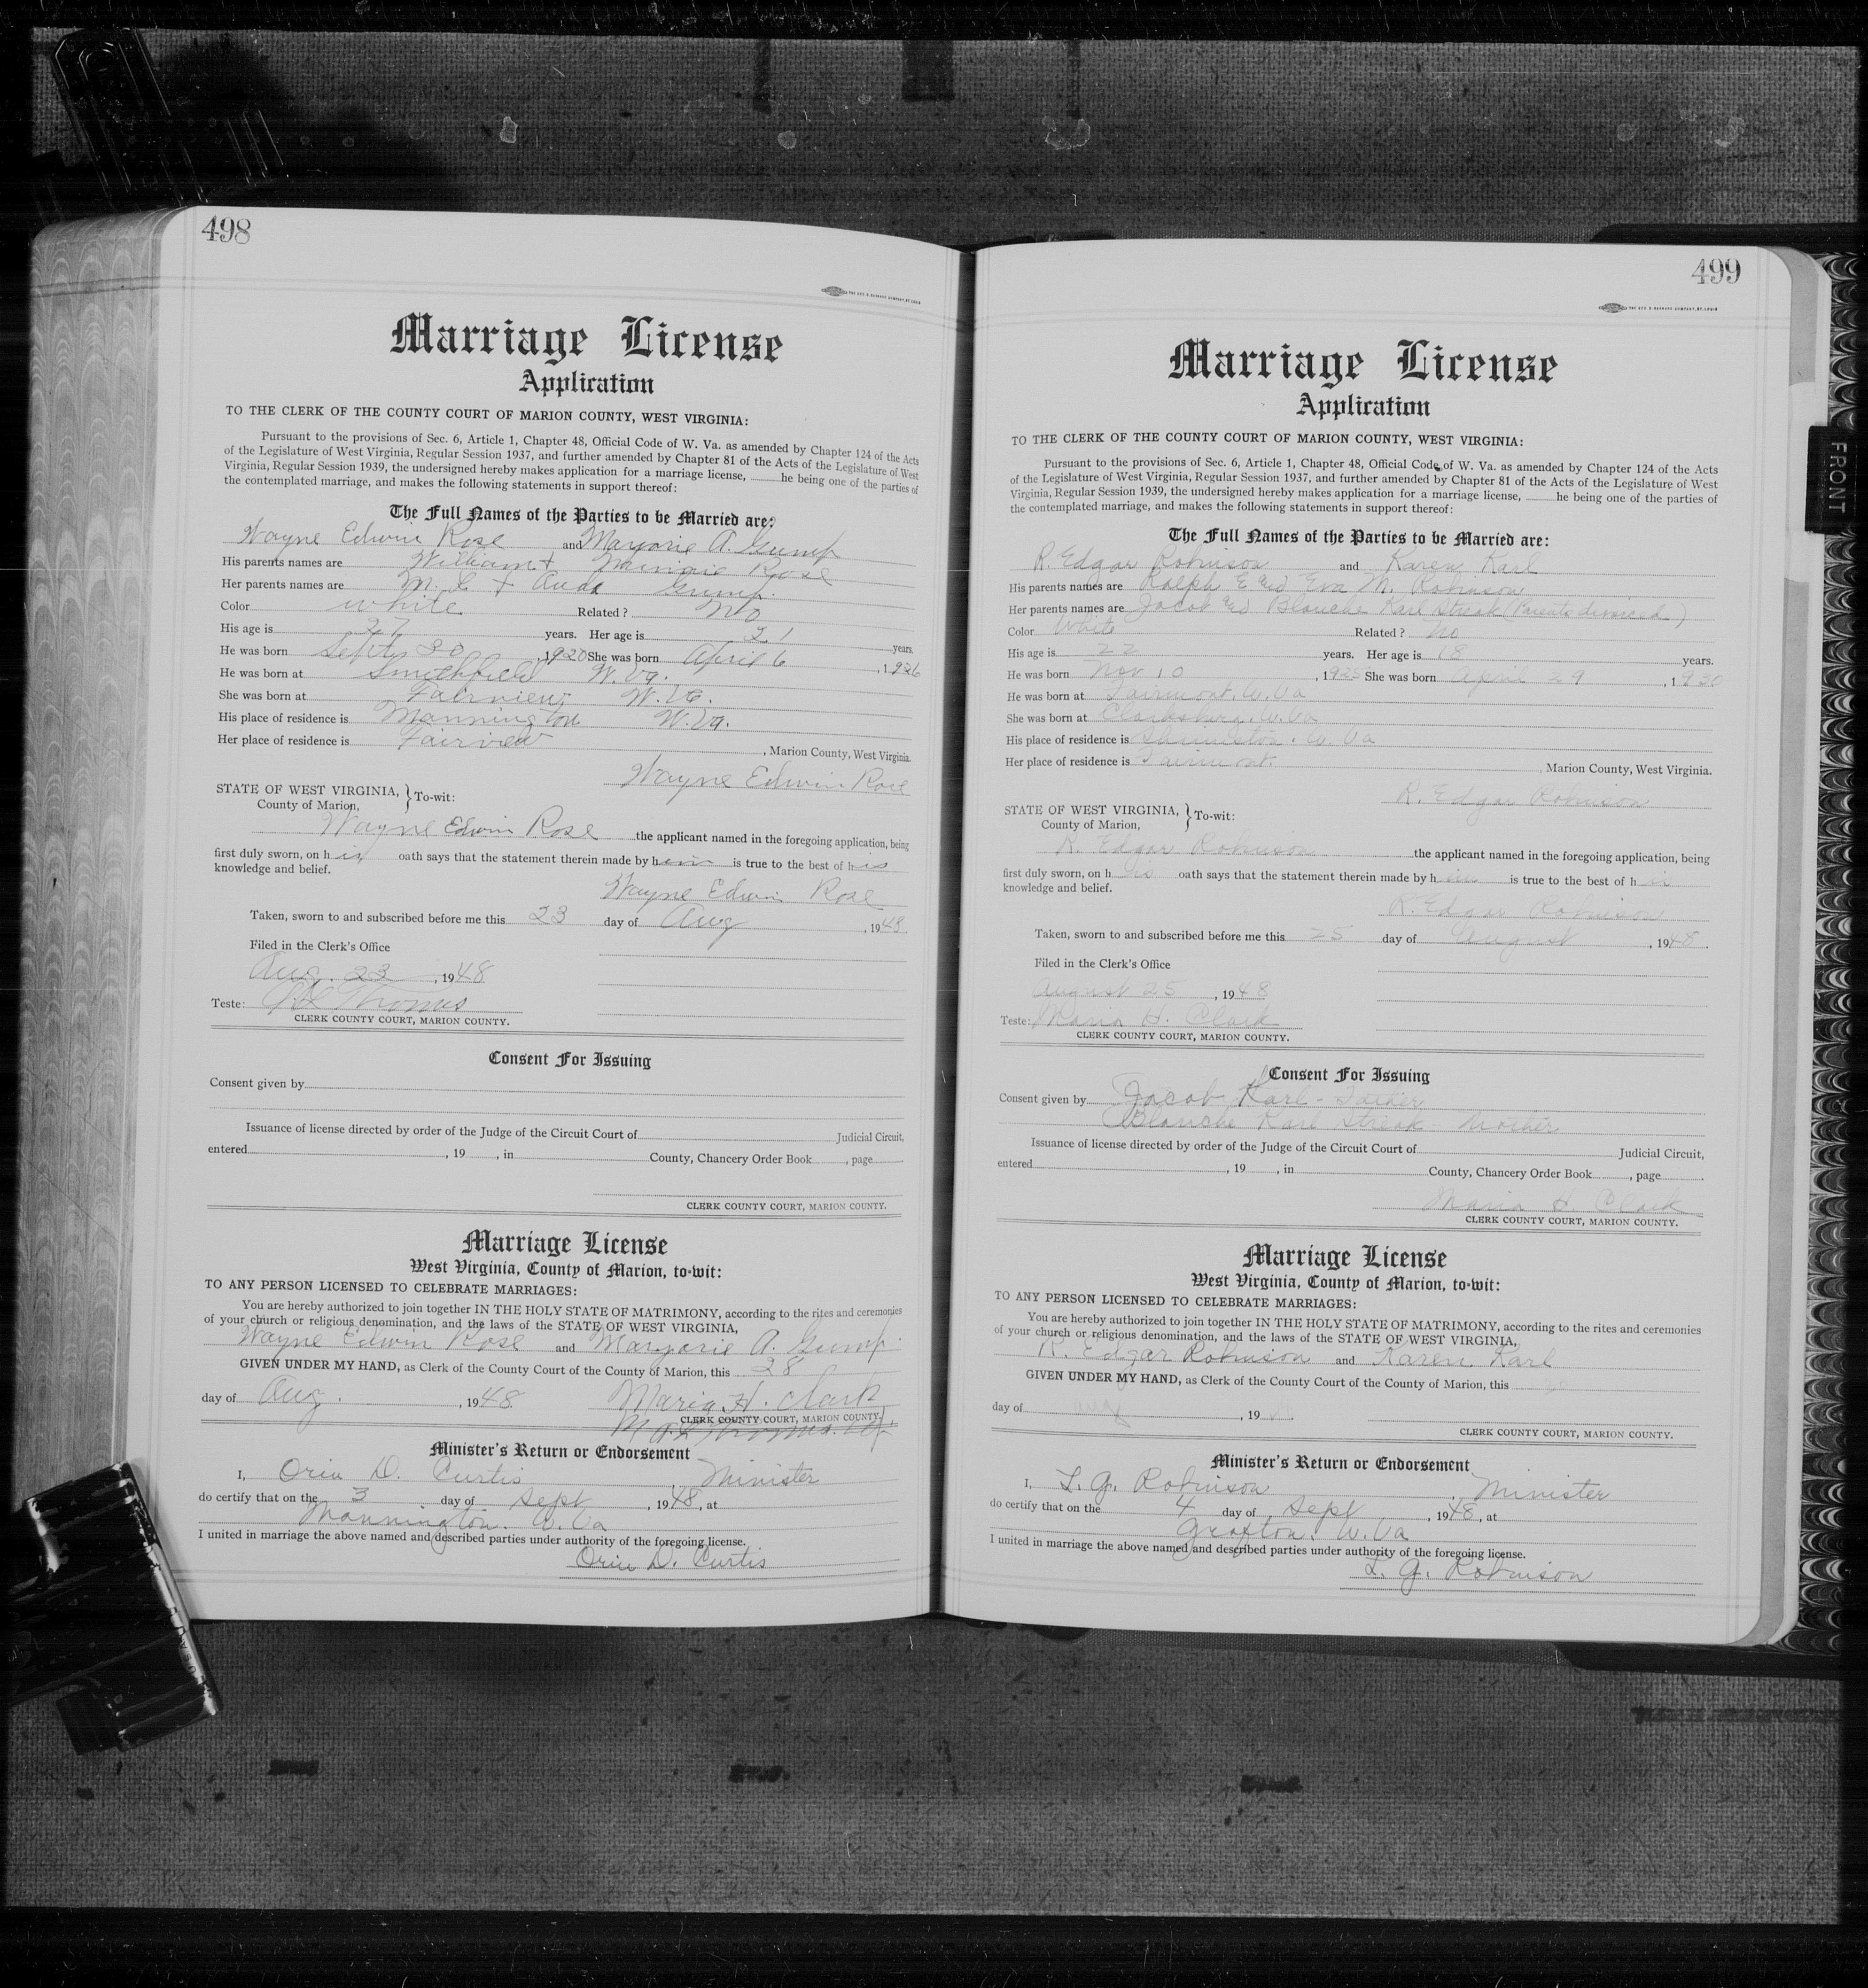 498
THE GEO. D. BARNARD COMPANY, ST. LOUIS
Marriage License
Application
TO THE CLERK OF THE COUNTY COURT OF MARION COUNTY, WEST VIRGINIA:
Pursuant to the provisions of Sec. 6, Article 1, Chapter 48, Official Code of W. Va. as amended by Chapter 124 of the Acts
of the Legislature of West Virginia, Regular Session 1937, and further amended by Chapter 81 of the Acts of the Legislature of West
Virginia, Regular Session 1939, the undersigned hereby makes application for a marriage license, he being one of the parties of
the contemplated marriage, and makes the following statements in support thereof:
The Full Names of the Parties to be Married are:
Wayne Edwin Rose and Marjorie A. Gump
His parents names are William + Minnie Rose
Her parents names are M. C. + Auda Gump.
Color white Related? No
His age is 27 years. Her age is 21 years.
He was born Sept 20, 1920 She was born April 6, 1926
He was born at Smithfield W. Va.
She was born at Fairview W. Va.
His place of residence is Mannington W. Va.
Her place of residence is Fairview, Marion County, West Virginia.
Wayne Edwin Rose
STATE OF WEST VIRGINIA, } To-wit:
County of Marion,
Wayne Edwin Rose the applicant named in the foregoing application, being
first duly sworn, on his oath says that the statement therein made by him is true to the best of his
knowledge and belief.
Wayne Edwin Rose
Taken, sworn to and subscribed before me this 23 day of Aug, 1948.
Filed in the Clerk's Office
Aug. 23, 1948
Teste: Thomas
CLERK COUNTY COURT, MARION COUNTY.
Consent For Issuing
Consent given by
Issuance of license directed by order of the Judge of the Circuit Court of Judicial Circuit,
entered , 19 , in County, Chancery Order Book , page .
CLERK COUNTY COURT, MARION COUNTY.
Marriage License
West Virginia, County of Marion, to-wit:
TO ANY PERSON LICENSED TO CELEBRATE MARRIAGES:
You are hereby authorized to join together IN THE HOLY STATE OF MATRIMONY, according to the rites and ceremonies
of your church or religious denomination, and the laws of the STATE OF WEST VIRGINIA,
Wayne Edwin Rose and Marjorie A. Gump.
GIVEN UNDER MY HAND, as Clerk of the County Court of the County of Marion, this 28
day of Aug., 1948 Maria H. Clark
CLERK COUNTY COURT, MARION COUNTY.
Thomas
Minister's Return or Endorsement
I, Orin D. Curtis, Minister
do certify that on the 3 day of Sept, 1948, at
Mannington. W. Va
I united in marriage the above named and described parties under authority of the foregoing license.
Orin D. Curtis
499
THE GEO. D. BARNARD COMPANY, ST. LOUIS
Marriage License
Application
TO THE CLERK OF THE COUNTY COURT OF MARION COUNTY, WEST VIRGINIA:
Pursuant to the provisions of Sec. 6, Article 1, Chapter 48, Official Code of W. Va. as amended by Chapter 124 of the Acts
of the Legislature of West Virginia, Regular Session 1937, and further amended by Chapter 81 of the Acts of the Legislature of West
Virginia, Regular Session 1939, the undersigned hereby makes application for a marriage license, he being one of the parties of
the contemplated marriage, and makes the following statements in support thereof:
The Full Names of the Parties to be Married are:
R. Edgar Robinson and Karen Karl
His parents names are Ralph E and Eva M. Robinson
Her parents names are Jacob and Blanche Karl Streak (Parents divorced)
Color White Related? No
His age is 22 years. Her age is 18 years.
He was born Nov 10, 1925 She was born April 29, 1930
He was born at Fairmont, W. Va
She was born at Clarksburg, W. Va
His place of residence is Shinnston. W. Va
Her place of residence is Fairmont. , Marion County, West Virginia.
R. Edgar Robinson
STATE OF WEST VIRGINIA, } To-wit:
County of Marion,
R. Edgar Robinson the applicant named in the foregoing application, being
first duly sworn, on his oath says that the statement therein made by him is true to the best of his
knowledge and belief.
R. Edgar Robinson
Taken, sworn to and subscribed before me this 25 day of August, 1948.
Filed in the Clerk's Office
August 25, 1948
Teste: Maria H. Clark
CLERK COUNTY COURT, MARION COUNTY.
Consent For Issuing
Consent given by Jacob Karl - Father
Blanche Karl Streak - Mother
Issuance of license directed by order of the Judge of the Circuit Court of Judicial Circuit,
entered , 19 , in County, Chancery Order Book , page .
Maria H. Clark
CLERK COUNTY COURT, MARION COUNTY.
Marriage License
West Virginia, County of Marion, to-wit:
TO ANY PERSON LICENSED TO CELEBRATE MARRIAGES:
You are hereby authorized to join together IN THE HOLY STATE OF MATRIMONY, according to the rites and ceremonies
of your church or religious denomination, and the laws of the STATE OF WEST VIRGINIA,
R. Edgar Robinson and Karen Karl
GIVEN UNDER MY HAND, as Clerk of the County Court of the County of Marion, this
day of Aug , 19 .
CLERK COUNTY COURT, MARION COUNTY.
Minister's Return or Endorsement
I, L. G. Robinson, Minister
do certify that on the 4 day of Sept, 1948, at
Grafton, W. Va
I united in marriage the above named and described parties under authority of the foregoing license.
L. G. Robinson
FRONT